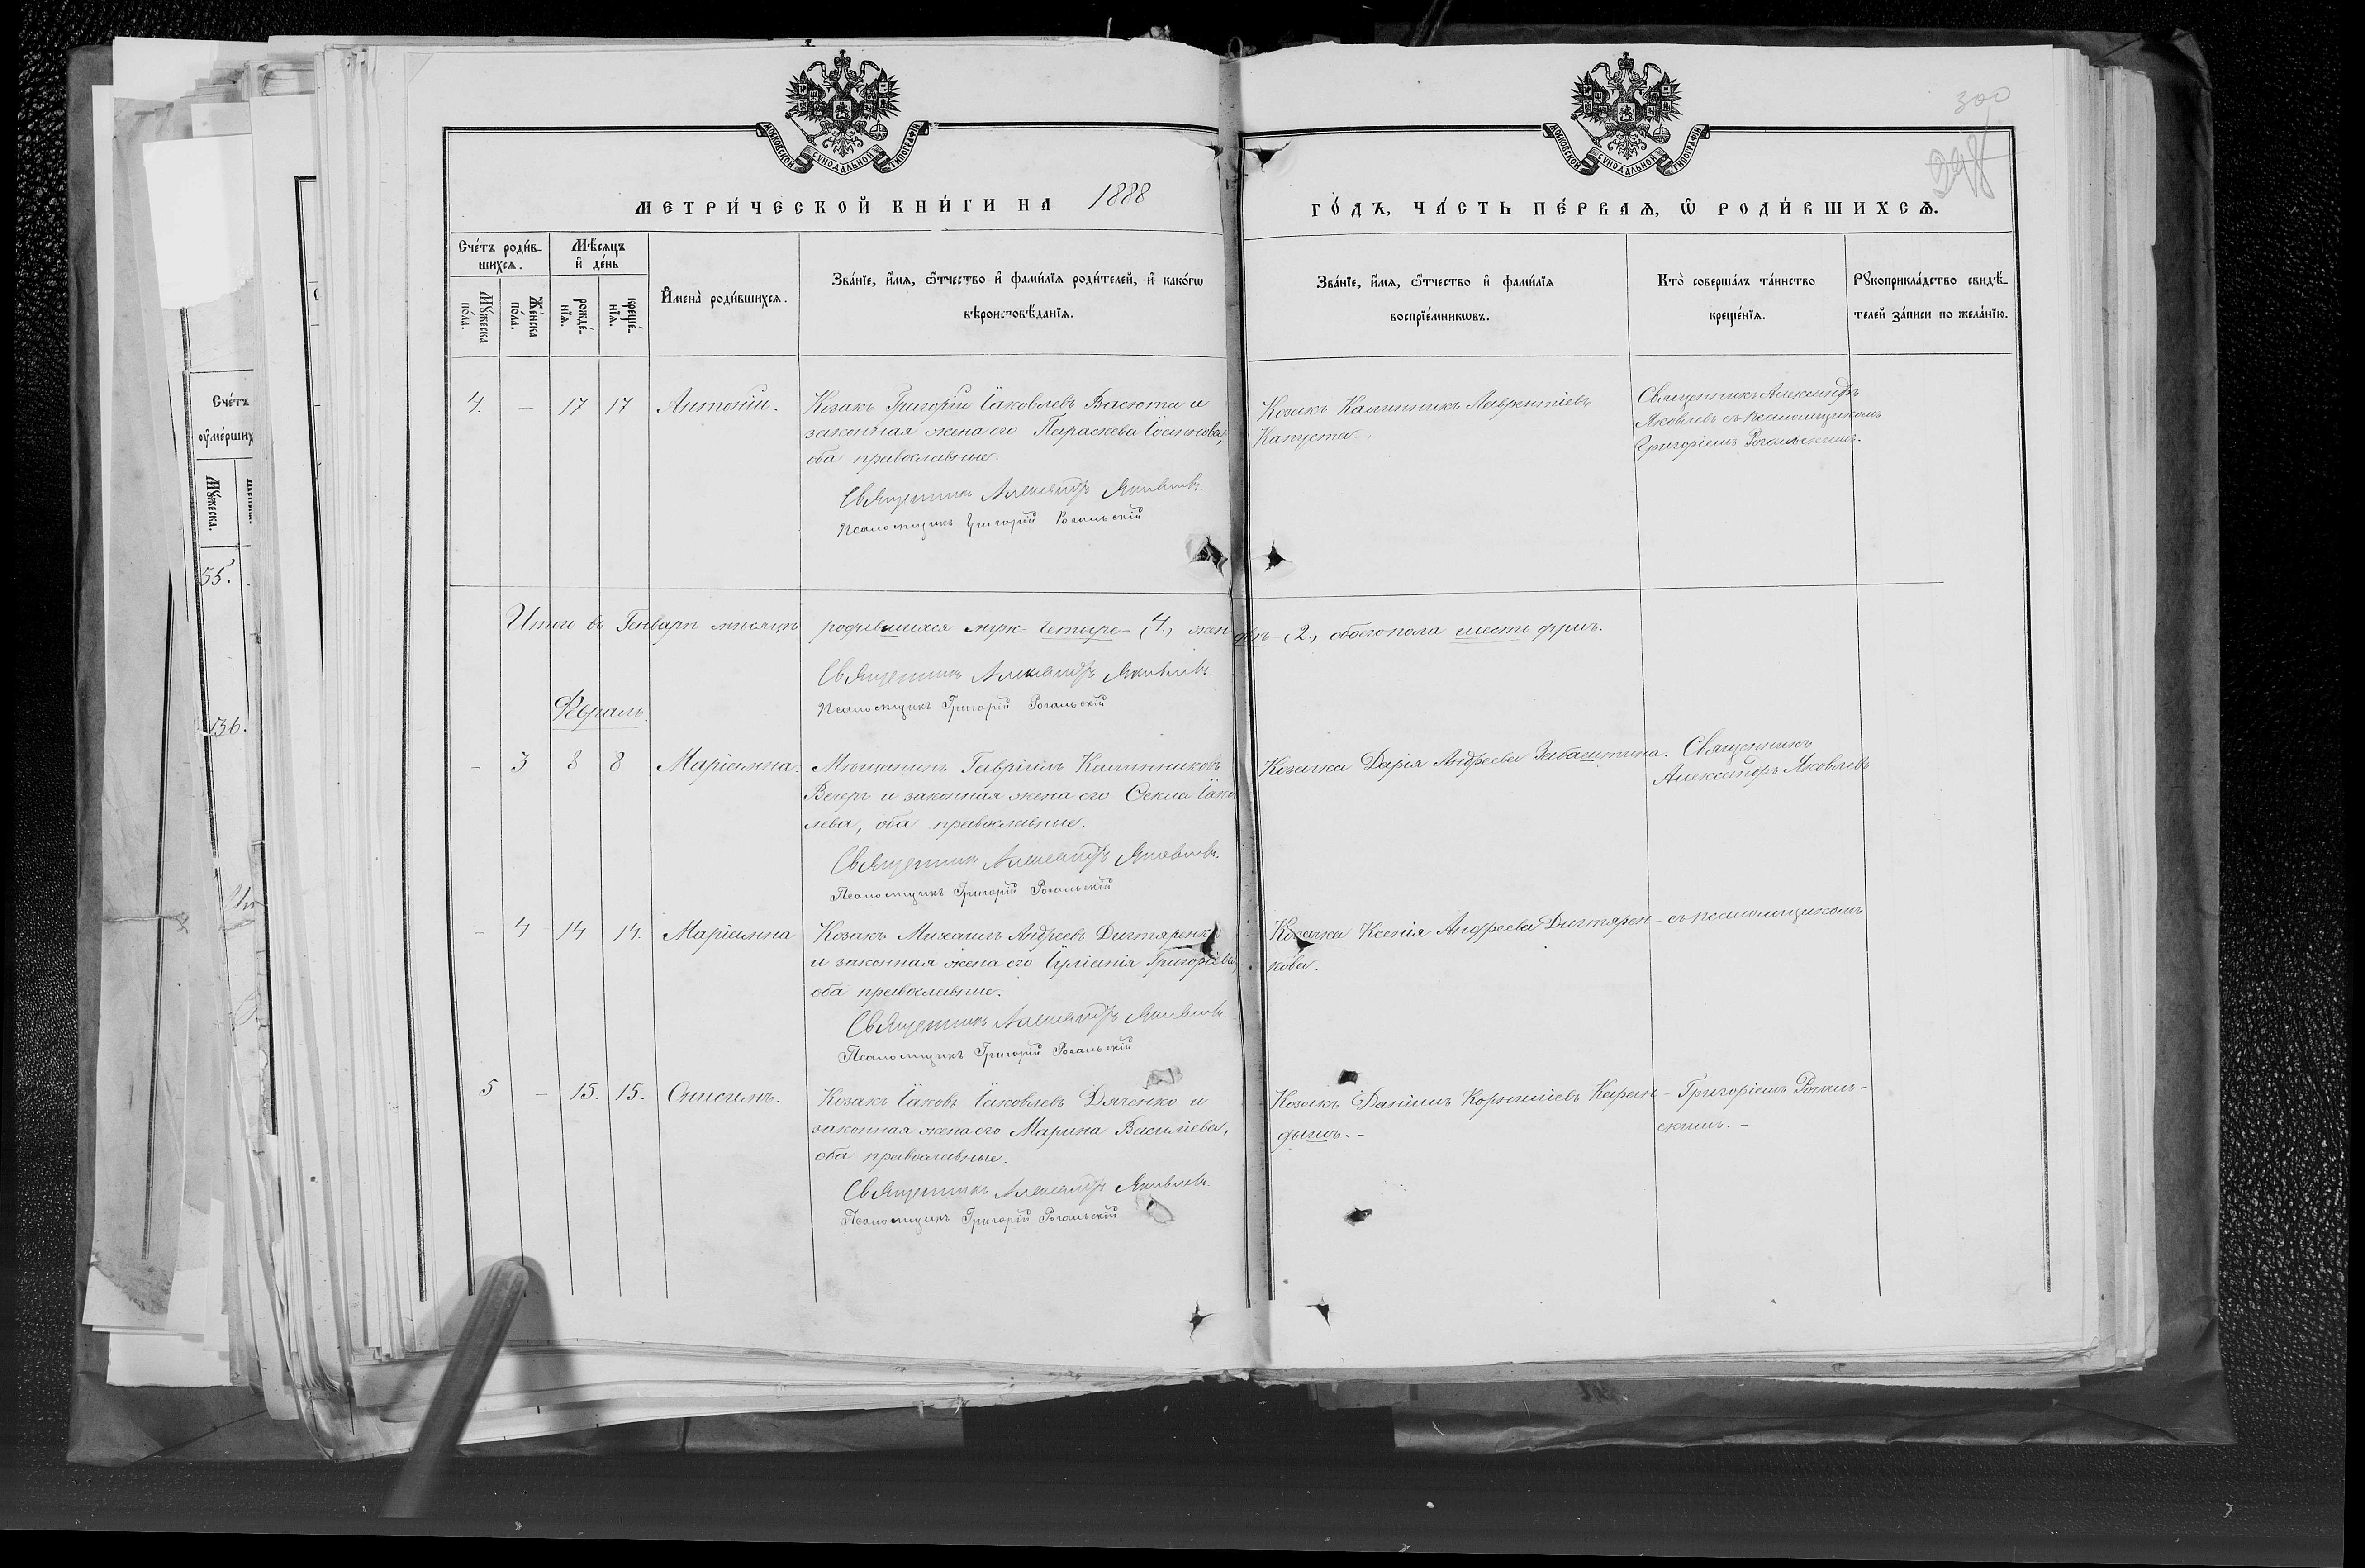 МОСКОВСКОЙ СѴНОДАЛЬНОЙ ТИПОГРАФІИ
МОСКОВСКОЙ СѴНОДАЛЬНОЙ ТИПОГРАФІИ
300
298
МЕТРИ́ЧЕСКОЙ КНИ́ГИ НА 1888
ГО́ДЪ, ЧА́СТЬ ПЕ́РВАѦ, Ѡ҆ РОДИ́ВШИХСѦ.
Сче́тъ роди́в-
шихсѧ.
Мѣ́сѧцъ
и҆ де́нь
Мꙋ́жеска
по́ла.
Же́нска
по́ла.
рожде́-
нїѧ.
креще́-
нїѧ.
И҆мена̀ роди́вшихсѧ.
Зва́нїе, и҆́мѧ, ѻ҆́тчество и҆ фами́лїѧ роди́телей, и҆ како́гѡ
вѣроисповѣ́данїѧ.
Зва́нїе, и҆́мѧ, ѻ҆́тчество и҆ фами́лїѧ
воспрїе́мникѡвъ.
Кто̀ соверша́лъ та́инство
креще́нїѧ.
Рꙋкоприкла́дство свидѣ́-
телей за́писи по жела́нїю.
4. - 17 17 Антоній.
Козакъ Григорій Іаковлевъ Васюта и
законная жена его Параскева Іоаннова,
оба православные.
Священникъ Александръ Яковлевъ.
Псаломщикъ Григорій Рогальскій
Козакъ Калинникъ Лаврентіевъ
Капуста.
Священникъ Александръ
Яковлевъ съ псаломщикомъ
Григоріемъ Рогальскимъ.
Итого въ Генварѣ мѣсяцѣ родившихся муж- четыре- (4.), жен двѣ- (2.), обоего пола шесть душъ.
Священникъ Александръ Яковлевъ.
Псаломщикъ Григорій Рогальскій
Февраль.
- 3 8 8 Маріанна.
Мѣщанинъ Гавріилъ Калинниковъ
Вечеръ и законная жена его Ѳекла Іаков
лева, оба православные.
Священникъ Александръ Яковлевъ.
Псаломщикъ Григорій Рогальскій
Козачка Дарія Андреева Забаштина.
Священникъ
Александръ Яковлевъ
- 4 14 14. Маріанна
Козакъ Михаилъ Андреевъ Дигтяренко
и законная жена его Іуліанія Григоріева,
оба православные.
Священникъ Александръ Яковлевъ.
Псаломщикъ Григорій Рогальскій
Козачка Ксенія Андреева Дигтярен-
кова.
съ псаломщикомъ
5 - 15. 15. Онисимъ.
Козакъ Іаковъ Іаковлевъ Дяченко и
законная жена его Марина Василіева,
оба православные.
Священникъ Александръ Яковлевъ.
Псаломщикъ Григорій Рогальскій
Козакъ Даніилъ Корниліевъ Каран-
дышъ.-
Григоріемъ Рогаль-
скимъ.-
Сче́тъ
ѹ҆ме́рших
Мꙋ́жеска.
55.
136.